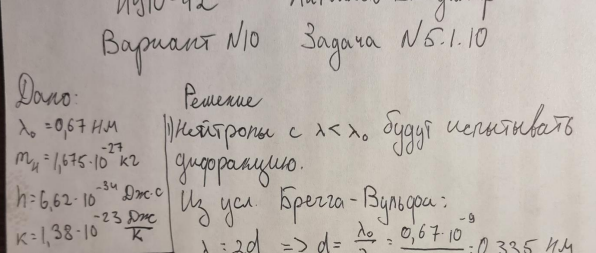 Вариант N10 Задача N5.1.10
Дано:
λ₀ = 0,67 нм
mн = 1,675·10⁻²⁷ кг
h = 6,62·10⁻³⁴ Дж·с
к = 1,38·10⁻²³ Дж/К
Решение
1) Нейтроны с λ < λ₀ будут испытывать
дифракцию.
Из усл. Брегга-Вульфа:
= 2d => d = λ₀/2 = 0,67·10⁻⁹ = 0,335 нм